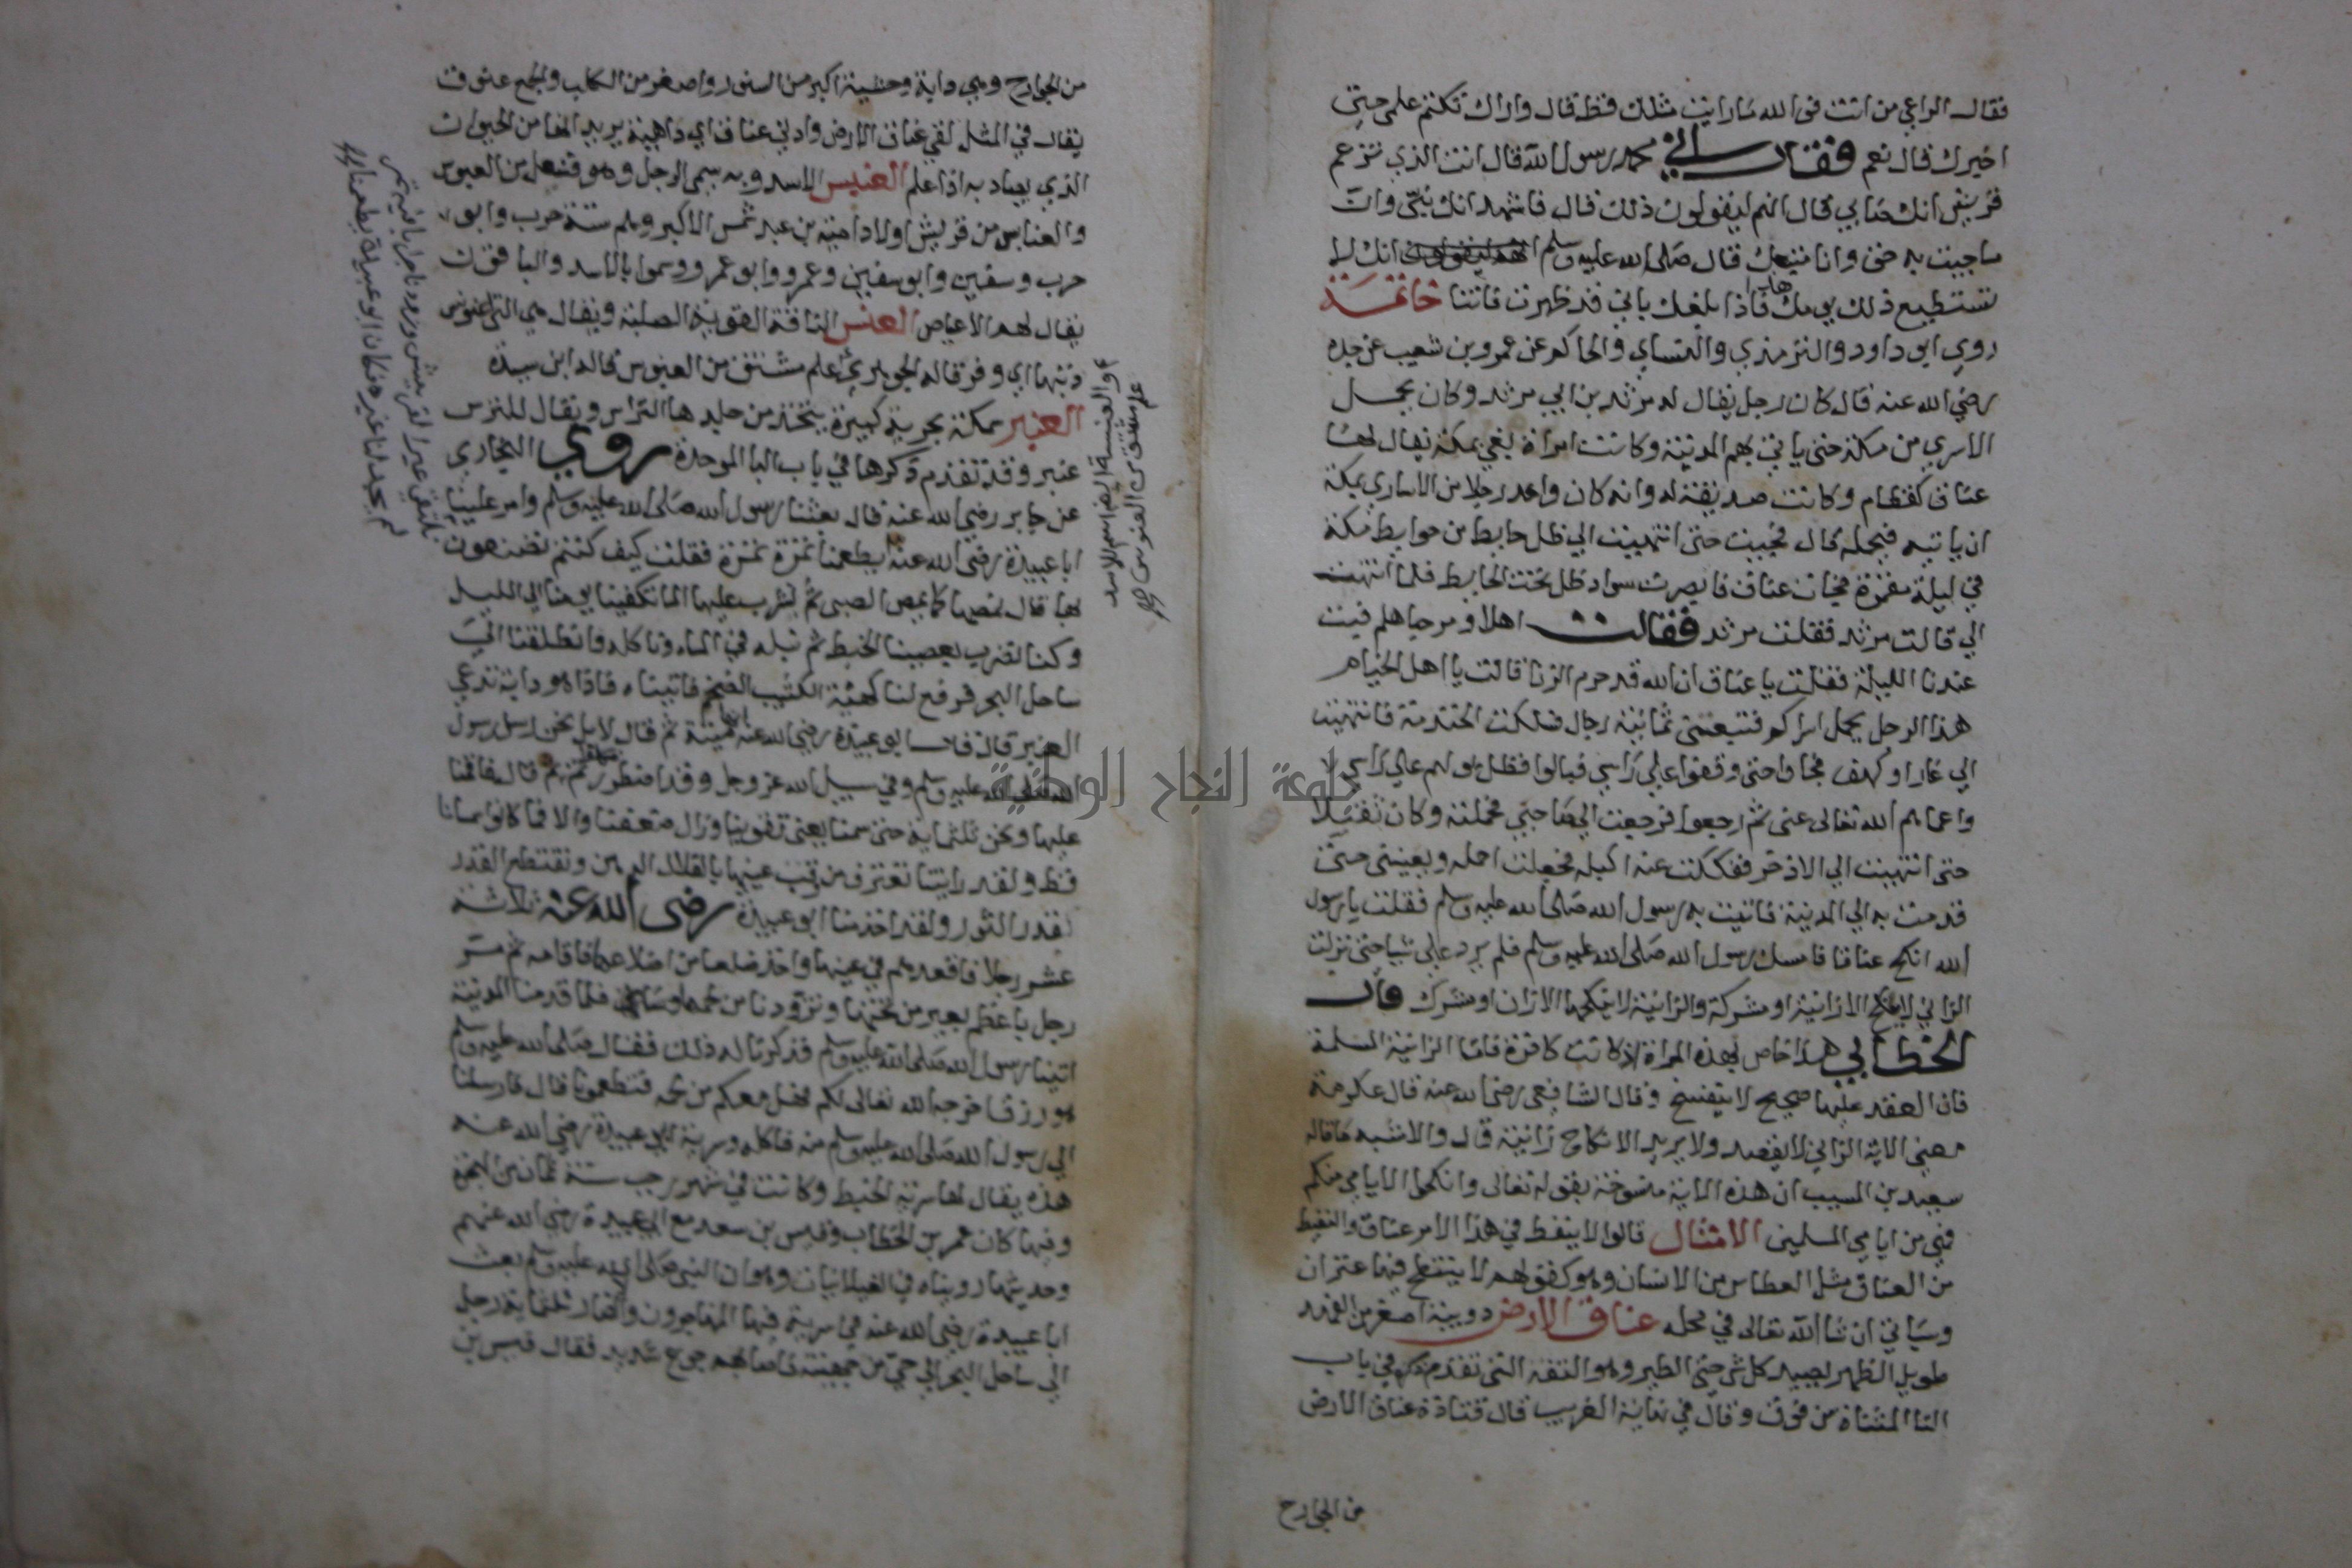 فقال الراعي من انت فوالله ما رايت مثلك قط قال واراك تكتم علي حتي
اخبرك قال نعم فقال اني محمد رسول الله قال انت الذي تزعم
قريش انك صابي قال انهم ليقولون ذلك قال فاشهد انك نبي وان
ما جيت به حق وانا متبعك قال صلى الله عليه وسلم انك لا
تستطيع ذلك يومك هذا فاذا بلغك باني قد ظهرت فاتنا خاتمة
روي ابو داود والترمذي والنساي والحاكم عن عمرو بن شعيب عن جده
رضي الله عنه قال كان رجل يقال له مرثد بن ابي مرثد وكان يحمل
الاسري من مكة حتى ياتي بهم المدينة وكانت امراة بغي بمكة يقال لها
عناق كقطام وكانت صديقة له وانه كان واعد رجلا من الاساري بمكة
ان ياتيه فيحمله قال فجيت حتى انتهيت الي ظل حايط من حوايط مكة
في ليلة مقمرة فجات عناق فابصرت سواد ظل تحت الحايط فلما انتهت
الي قالت مرثد فقلت مرثد فقالت اهلا ومرحبا هلم فبت
عندنا الليلة فقلت يا عناق ان الله قد حرم الزنا قالت يا اهل الخيام
هذا الرجل يحمل اسراكم فتبعني ثمانية رجال فسلكت الخندمة فانتهيت
الي غار او كهف فجاوا حتى وقفوا على راسي فبالوا فظل بولهم على راسي
واعماهم الله تعالى عني ثم رجعوا فرجعت الي صاحبي فحملته وكان ثقيلا
حتى انتهيت الي الاذخر ففككت عنه اكبله فجعلت احمله ويعينني حتى
قدمت به الي المدينة فاتيت به رسول الله صلى الله عليه وسلم فقلت يا رسول
الله انكح عناقا فامسك رسول الله صلى الله عليه وسلم فلم يرد علي شيا حتى نزلت
الزاني لا ينكح الا زانية او مشركة والزانية لا ينكحها الا زان او مشرك قال
الخطابي هذا خاص بهذه المراة اذ كانت كافرة فاما الزانية المسلمة
فان العقد عليها صحيح لا ينفسخ وقال الشافعي رضي الله عنه قال عكرمة
معنى الاية الزاني لا يقصد ولا يريد الا نكاح زانية قال والاشبه ما قاله
سعيد بن المسيب ان هذه الاية منسوخة بقوله تعالى وانكحوا الايامي منكم
فهي من ايامي المسلمين الامثال قالوا لا ينفط في هذا الامر عناق والنفيط
من العناق مثل العطاس من الانسان وهو كقولهم لا ينتطح فيها عنزان
وسياتي ان شا الله تعالى في محله عناق الارض دويبة اصغر من الفهد
طويل الظهر يصيد كل شي حتى الطير وهو التفه التي تقدم ذكره في باب
التا المثناة من فوق وقال في نهاية الغريب قال قتادة عناق الارض
من الجوارح
من الجوارح وهي دابة وحشية اكبر من السنور واصغر من الكلب والجمع عنوق
يقال في المثل لقي عناق الارض واذني عناق اي داهية يريد انها من الحيوان
الذي يصاد به اذا علم العنبس الاسد وبه سمي الرجل وهو فنعل من العبوس
والعنابس من قريش اولاد امية بن عبد شمس الاكبر وهم ستة حرب وابو
حرب وسفين وابو سفيين وعمرو وابو عمرو وسموا بالاسد والباقون
يقال لهم الاعياص العنس الناقة القوية الصلبة ويقال هي التي اعنونس
ذنبها اي وفر قاله الجوهري علم مشتق من العبوس قاله ابن سيدة
العنبر سمكة بحرية كبيرة يتخذ من جلدها التراس ويقال للترس
عنبر وقد تقدم ذكرها في باب البا الموحدة روي البخاري
عن جابر رضي الله عنه قال بعثنا رسول الله صلى الله عليه وسلم وامر علينا
ابا عبيدة رضي الله عنه يطعمنا تمرة تمرة فقلت كيف كنتم تصنعون
بها قال نمصها كما يمص الصبي ثم نشرب عليها الما فتكفينا يومنا الي الليل
وكنا نضرب بعصينا الخبط ثم نبله في الماء وناكله وانطلقنا الي
ساحل البحر فرفع لنا كهيئة الكثيب الضخم فاتيناه فاذا هو دابة تدعي
العنبر قال فلسا ابو عبيدة رضي الله عنه انها ميتة ثم قال لا بل نحن رسل رسول
الله صلى الله عليه وسلم وفي سبيل الله عز وجل وقد اضطررتم قال فاقمنا
عليها ونحن ثلثماية حتى سمنا يعني تقوينا وزال ضعفنا والا فما كانوا سمانا
قط ولقد رايتنا نغترف من وقب عينها بالقلال الدهن ونقتطع القدر
كقدر الثور ولقد اخذ منا ابو عبيدة رضى الله عنه ثلاثة
عشر رجلا فاقعدهم في عينها واخذ ضلعا من اضلاعها فاقامه ثم مر
رجل باعظم بعير من تحتها وتزودنا من لحمها فلما قدمنا المدينة
اتينا رسول الله صلى الله عليه وسلم فذكرنا له ذلك فقال صلى الله عليه وسلم
هو رزق اخرجه الله تعالى لكم فهل معكم من لحمه فتطعمونا قال فارسلنا
الي رسول الله صلى الله عليه وسلم منه فاكله وسرية ابي عبيدة رضي الله عنه
هذه يقال لها سرية الخبط وكانت في شهر رجب سنة ثمان من الهجرة
وفيها كان عمر بن الخطاب وقيس بن سعد مع ابي عبيدة رضي الله عنهم
وحديثها رويناه في الغيلانيات وهو ان النبي صلى الله عليه وسلم بعث
ابا عبيدة رضي الله عنه في سرية فيها المهاجرون والانصار ثلثماية رجل
الي ساحل البحر الي حي من جهينة فاصابهم جوع شديد فقال قيس بن
والعنبسة ايضا اسم الاسد
علم مشتق من العبوس صح
يلتقي عيرا لقريش وزودنا جرابا فيه تمر
لم يجد لنا غيره فكان ابو عبيدة يطعمنا
جامعة النجاح الوطنية